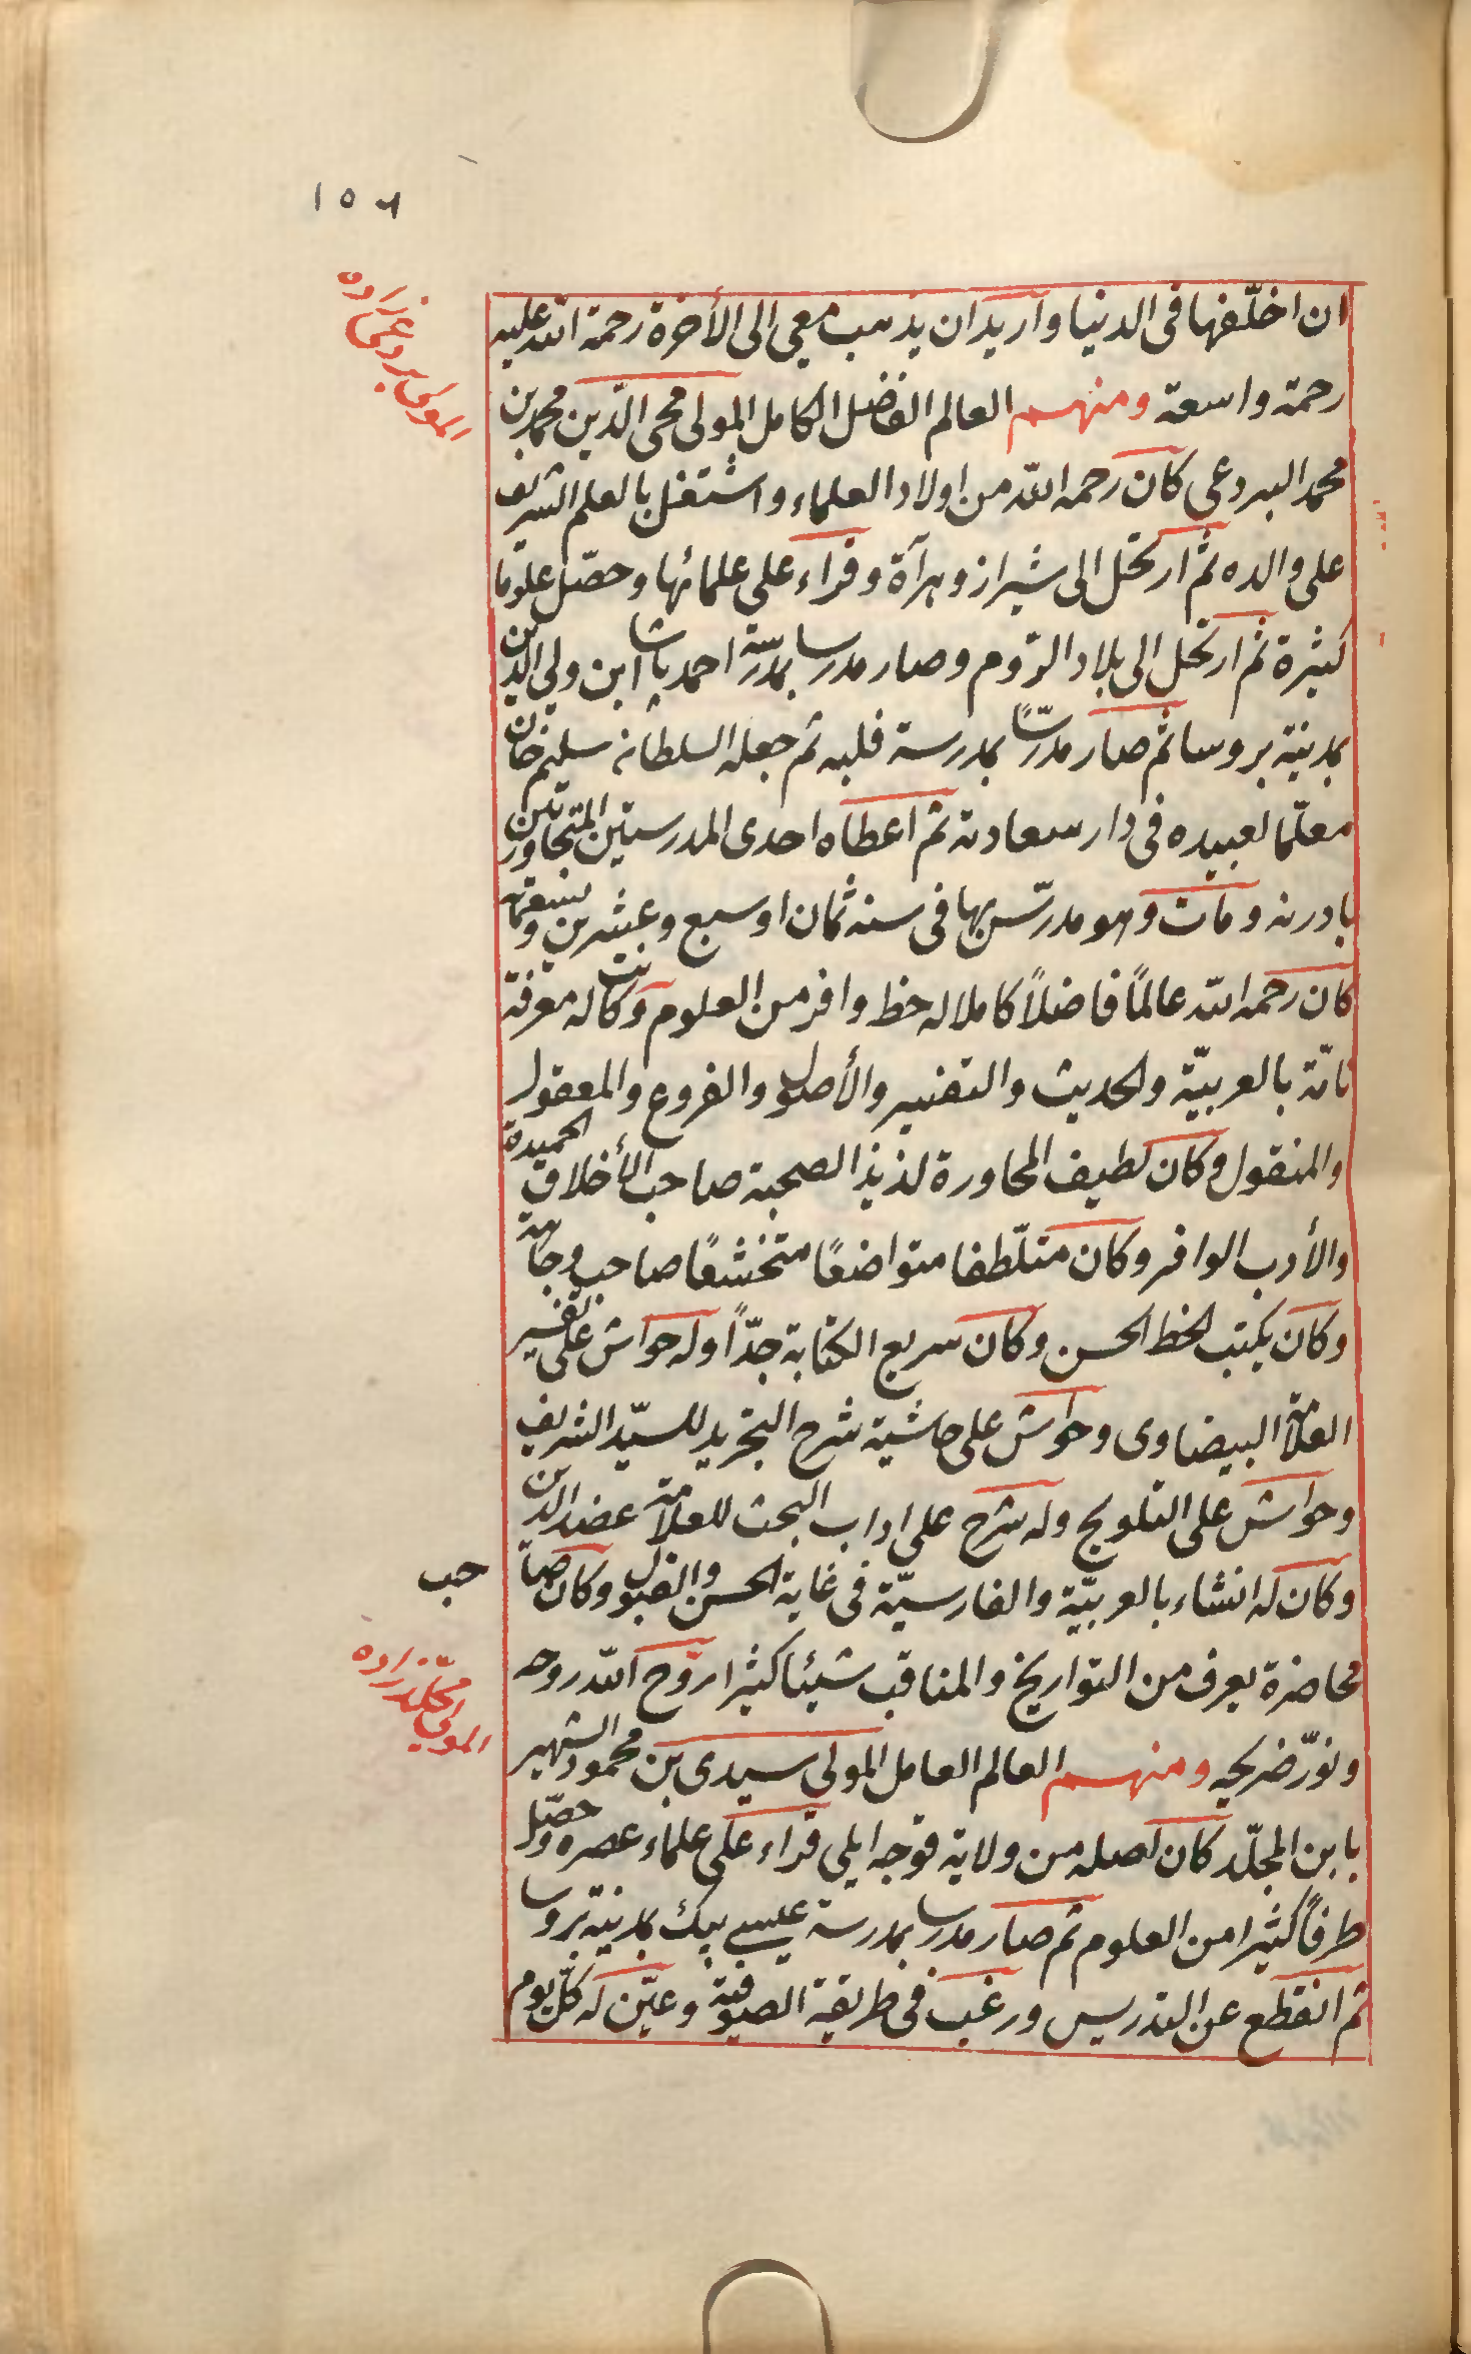 ١٥٦
المولى بردعى زاده
ان اخلّفها فى الدنيا واريد ان يذهب معى الى الأخرة رحمة الله عليه
رحمة واسعة ومنهم العالم الفاضل الكامل المولى محى الدّين محمد بن
محمد البردعى كان رحمه الله من اولاد العلماء واشتغل بالعلم الشريف
على والده ثم ارتحل الى شيراز وهرآة وقراء على علمائها وحصّل علوما
كثيرة ثم ارتحل الى بلاد الرّوم وصار مدرسا بمدرسة احمد باشا ابن ولى الدين
بمدينة بروسا ثم صار مدرّسًا بمدرسة قلبه ثم جعله السلطان سليم خان
معلّما لعبيده فى دار سعادته ثم اعطاه احدى المدرستين المتجاورتين
بادرنه ومات وهو مدرّس بها فى سنه ثمان او سبع وعشرين وتسعمائة
كان رحمه الله عالمًا فاضلاً كاملا له حظ وافر من العلوم وكانت له معرفة
تامّة بالعربيّة والحديث والتفسير والأصول والفروع والمعقول
والمنقول وكان لطيف المحاورة لذيذ الصحبة صاحب الأخلاق الحميدة
والأدب الوافر وكان متلطّفا متواضعًا متخشعًا صاحب وجاهة
وكان يكتب الخط الحسن وكان سريع الكتابة جدّاً وله حواش على تفسير
العلامة البيضاوى وحواش على حاشية شرح التجريد للسيّد الشريف
وحواش على التلويح وله شرح على اداب البحث للعلامة عضد الدين
وكان له انشاء بالعربيّة والفارسيّة فى غاية الحسن والقبول وكان صا
حب
محاضرة يعرف من التواريخ والمناقب شيئا كثيرا روّح الله روحه
المولى مجلّد زاده
ونوّر ضريحه ومنهم العالم العامل المولى سيدى بن محمود الشهير
بابن المجلّد كان اصله من ولاية قوجه ايلى قراء على علماء عصره وحصّل
طرفاً كثيرا من العلوم ثم صار مدرسا بمدرسة عيسى بيك بمدينة بروسا
ثم انقطع عن التدريس ورغب فى طريقة الصوفية وعيّن له كلّ يوم